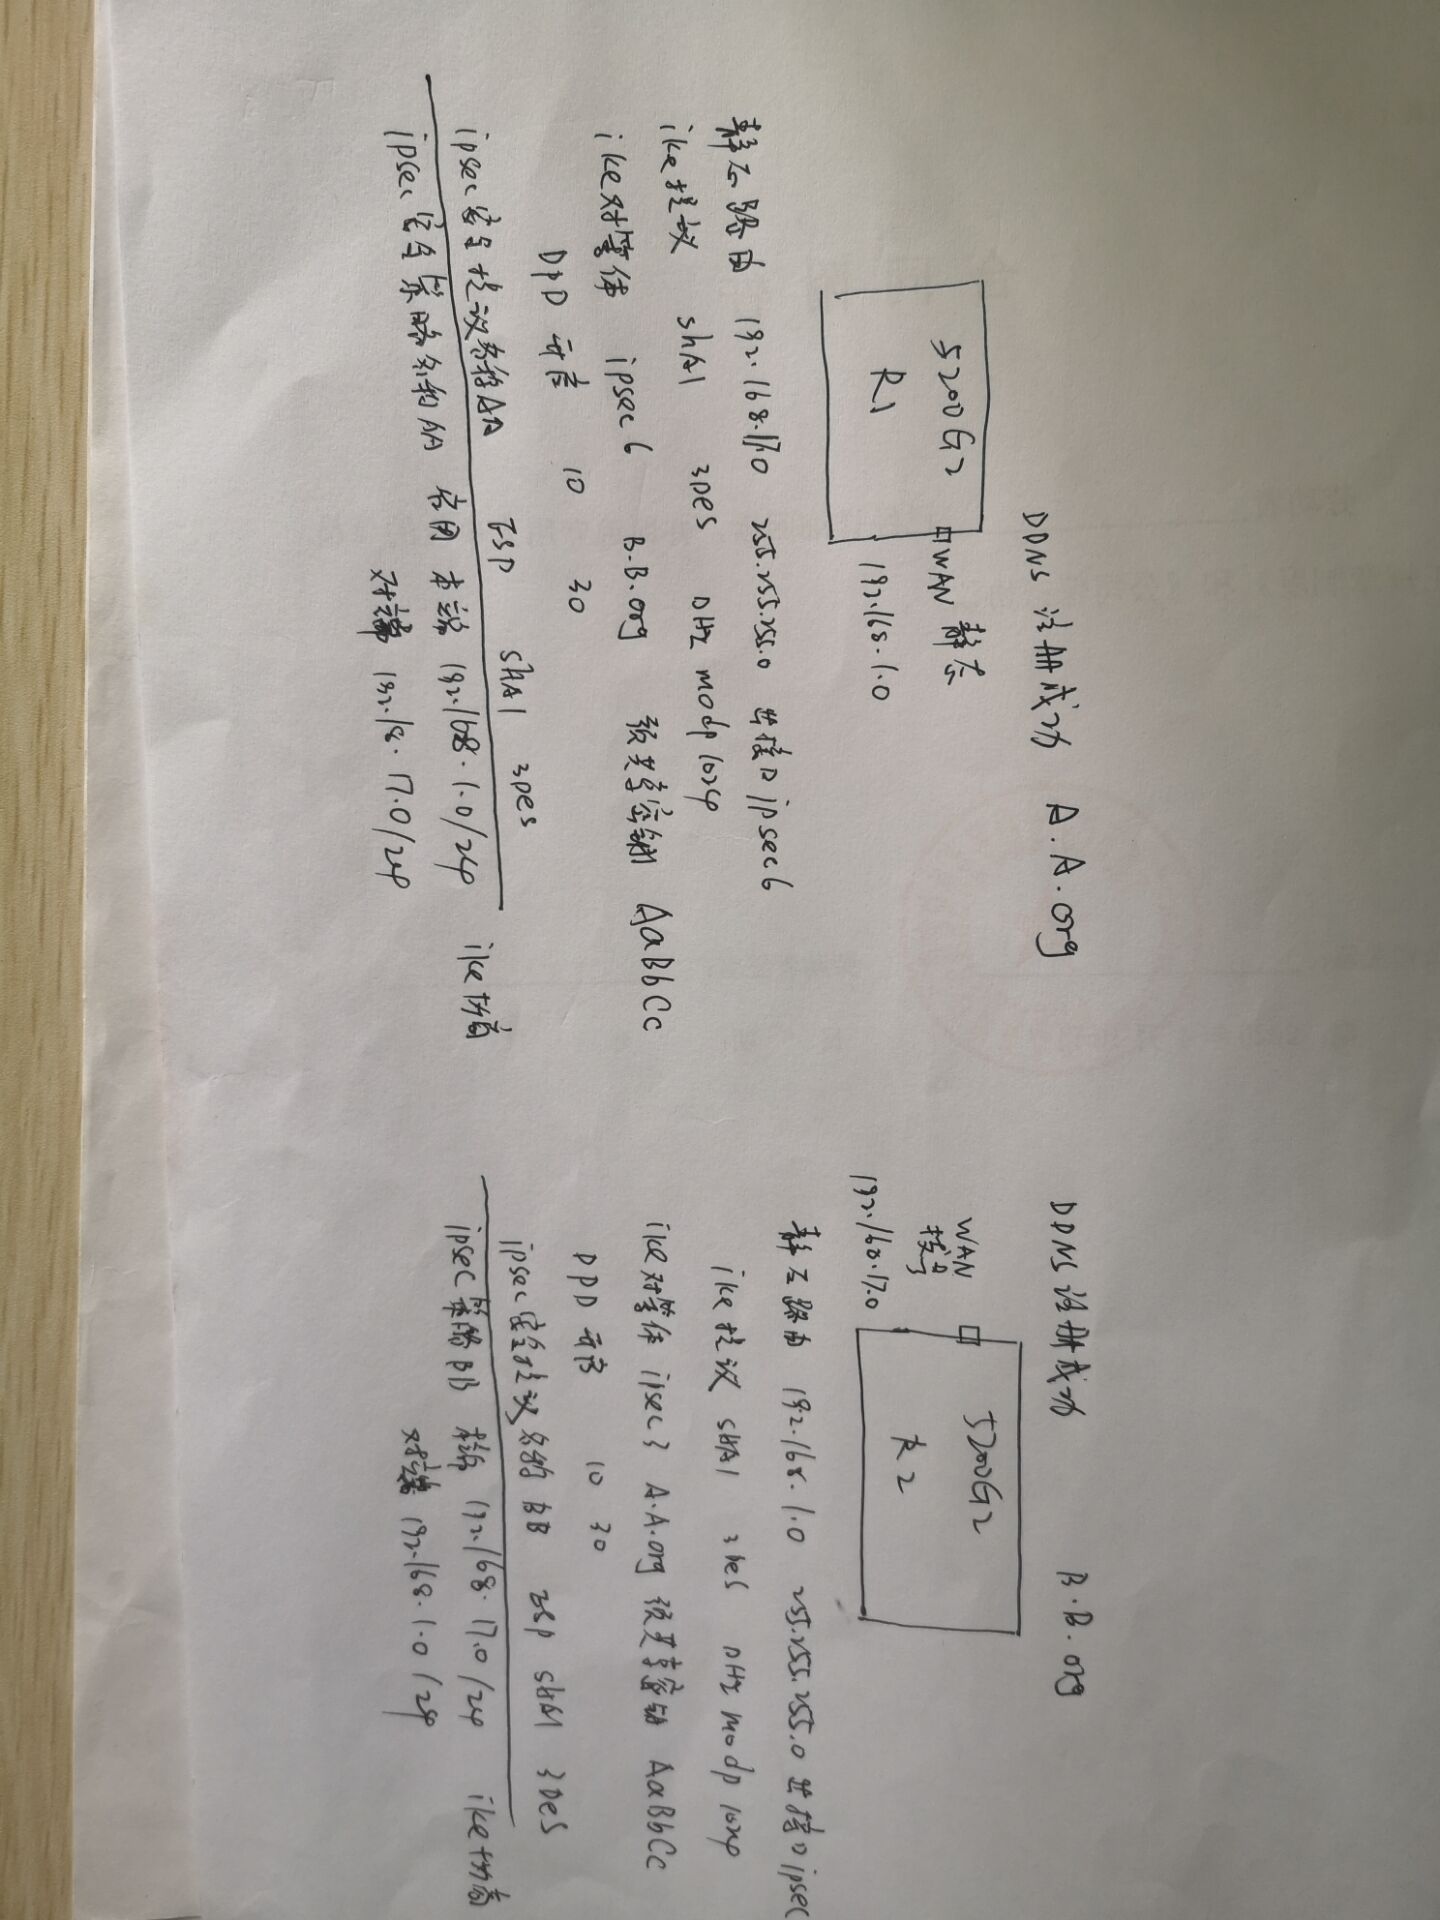 DDNS 注册成功 A.A.org
5200G2
R1
WAN 静态
192.168.1.0
静态路由 192.168.17.0 255.255.255.0 出接口 ipsec6
ike提议 shA1 3Des DH2 modp1024
ike对等体 ipsec6 B.B.org 预共享密钥 AaBbCc
DPD 开启 10 30
ipsec安全提议名称AA ESP shA1 3Des
ipsec安全策略名称AA 启用 本端 192.168.1.0/24 ike协商
对端 192.168.17.0/24
DDNS注册成功 B.B.org
WAN
5200G2
R2
192.168.17.0
静态路由 192.168.1.0 255.255.255.0 出接口ipsec
ike提议 shA1 3Des DH2 modp1024
ike对等体 ipsec3 A.A.org 预共享密钥 AaBbCc
DPD 开启 10 30
ipsec安全提议名称BB ESP shA1 3Des
ipsec策略BB 本端 192.168.17.0/24 ike协商
对端 192.168.1.0/24